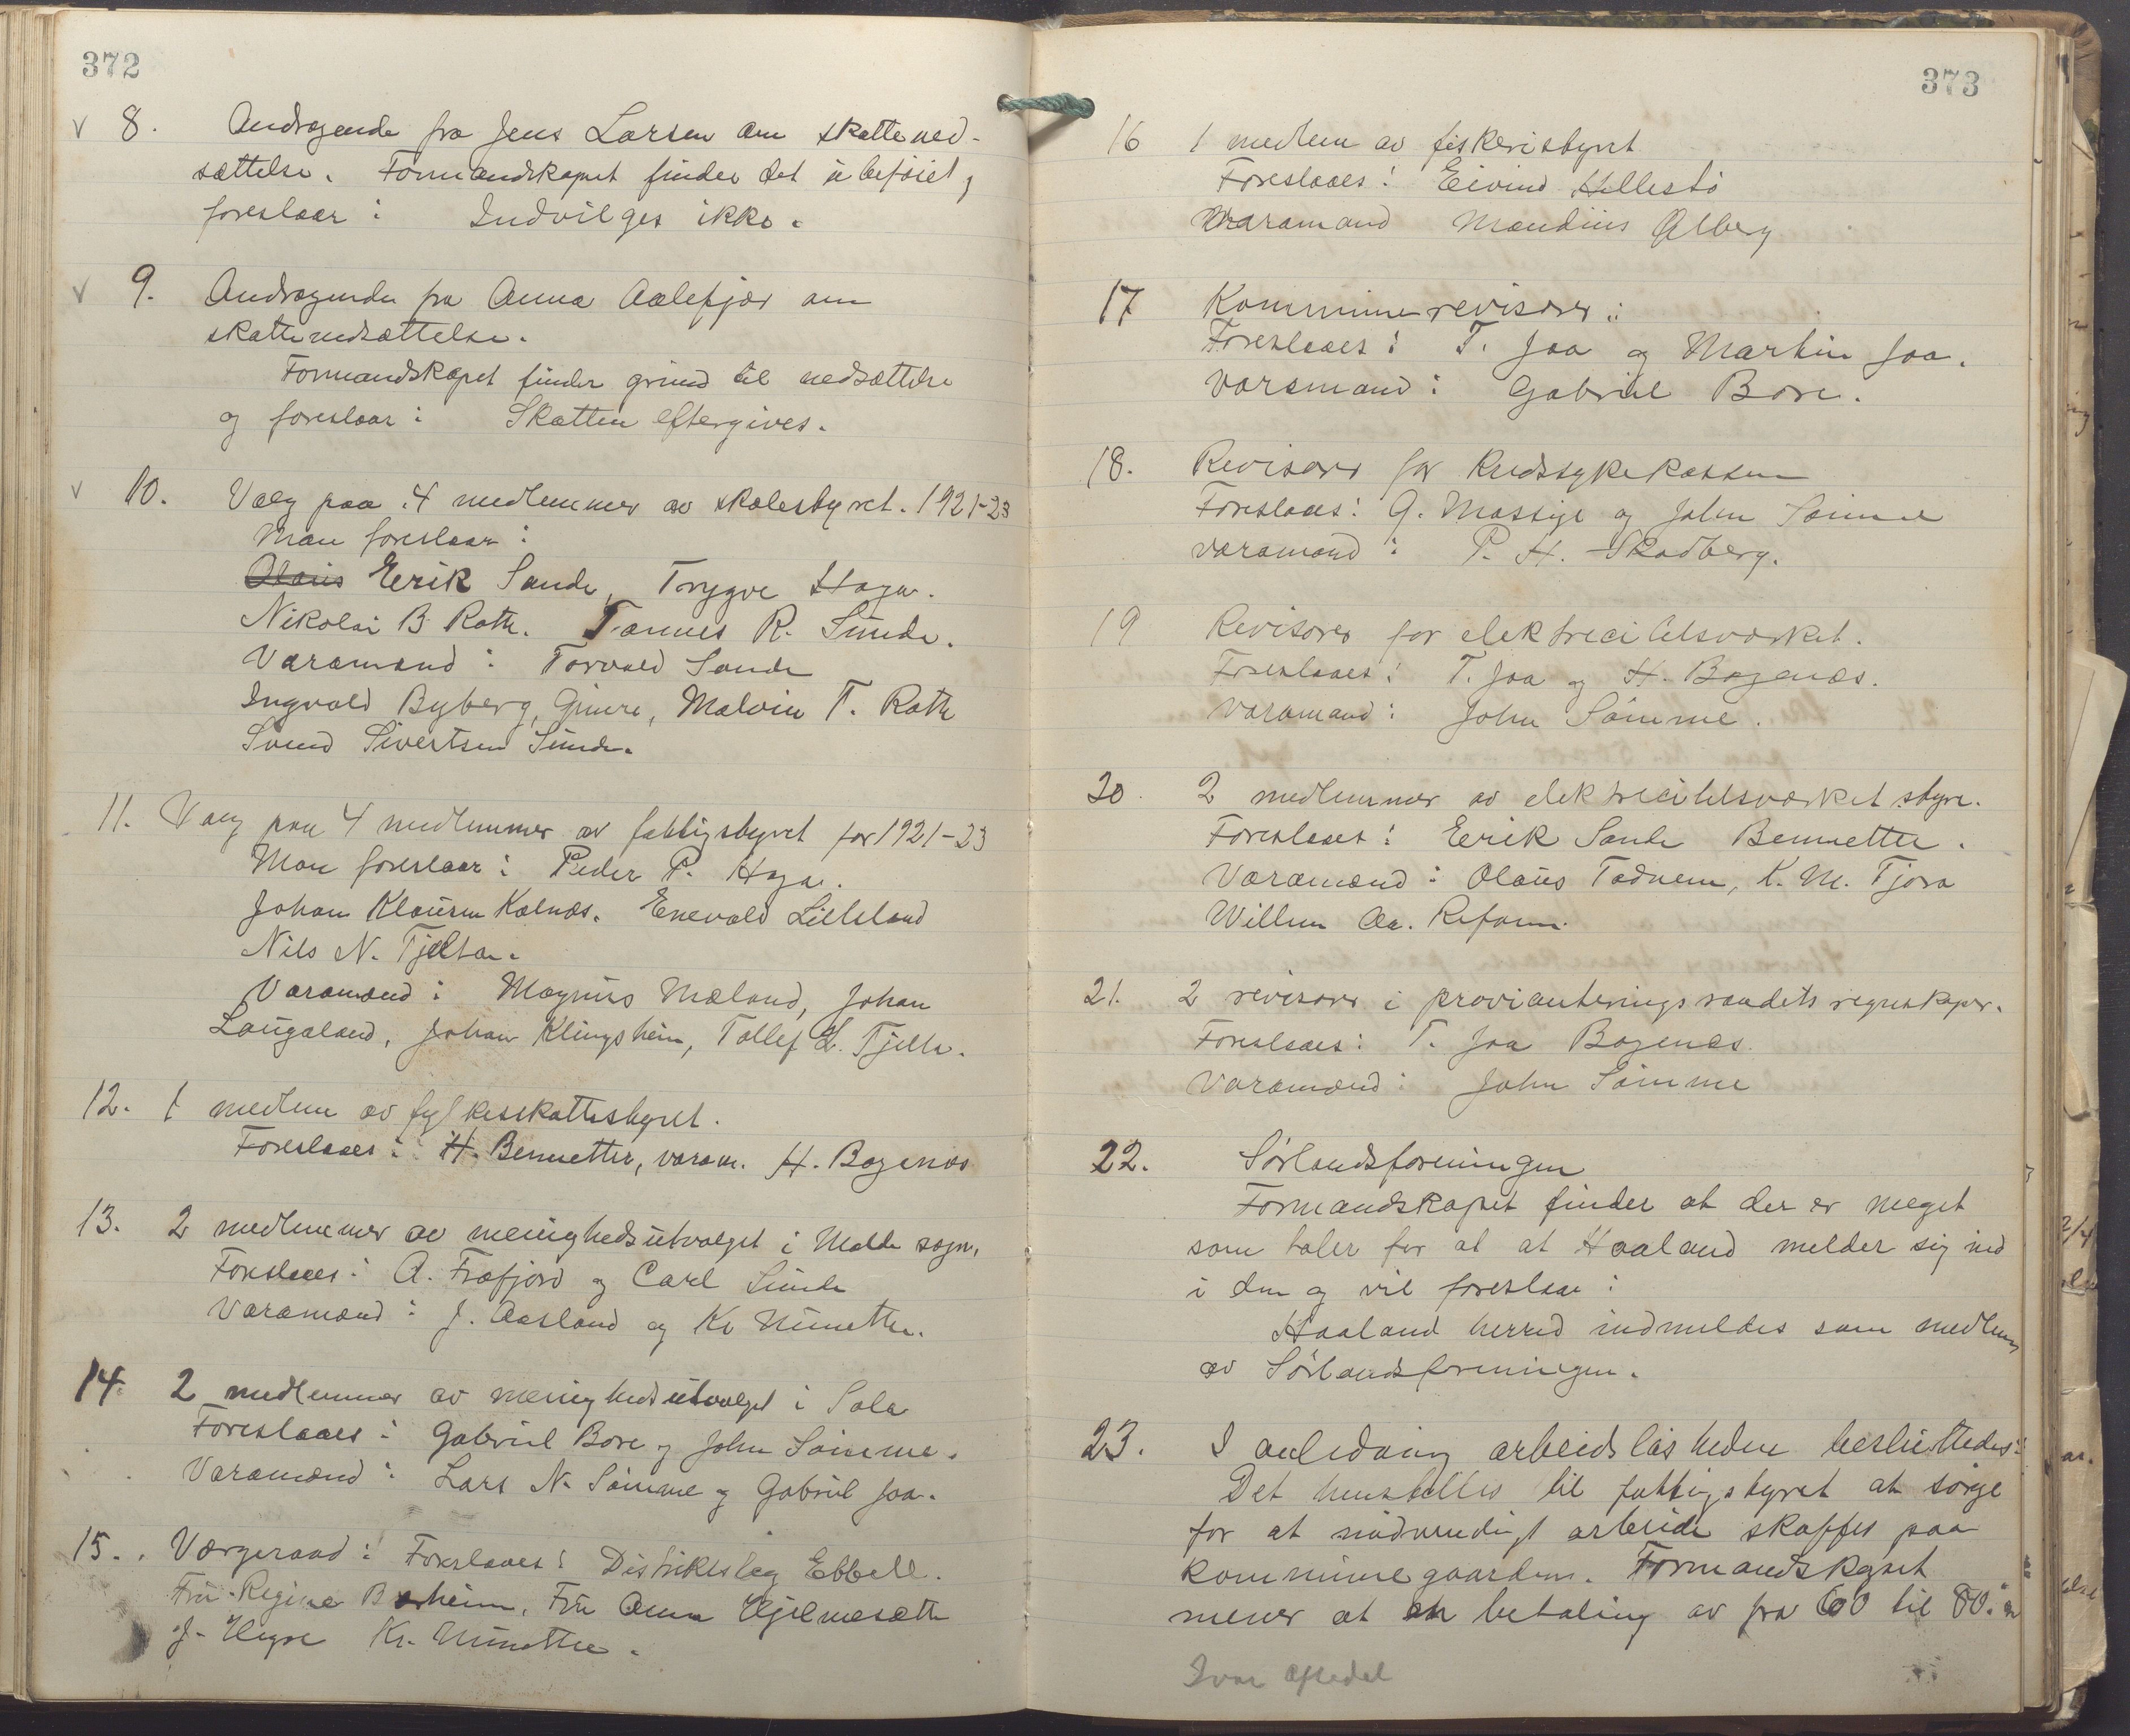 372
v 8. Andragende fra Jens Larsen om skattened-
sættelse. Formandskapet finder det ubeføiet og
foreslaar: Indvilges ikke.
v 9. Andragende fra Anna Aalefjær om
skattenedsættelse.
Formandskapet finder grund til nedsættelse
og foreslaar: Skatten eftergives.
v 10. Valg paa 4 medlemmer av skolestyret. 1921-23
Man foreslaar:
Olaus Eerik Sande, Trygve Haga.
Nikolai B Roth. Tønnes R. Sunde.
Varamænd: Torvald Sande
Ingvald Byberg, Grure, Malvin T. Roth
Svend Sivertsen Sunde.
11. Valg paa 4 medlemmer av fattigstyret for 1921-23
Man foreslaar: Peder P. Haga.
Johan Klausen Kolnæs. Enevald Lilleland
Nils N. Tjelta.
Varamænd: Magnus Mæland, Johan
Laugaland, Johan Klingsheim, Tollef L. Tjelta.
12. 1 medlem av fylkesskattestyret.
Foreslaaes: H. Bennetter, varam. H. Bogenæs
13. 2 medlemmer av menighedsutvalget i Malde sogn.
Foreslaaes: A. Frafjord og Carl Sunde
Varamænd: J. Aasland og Kr Nunetter.
14. 2 medlemmer av menighedsutvalget i Sola
Foreslaaes: Gabriel Bore og John Sømme.
Varamænd: Lars N. Sømme og Gabriel Joa.
15. Værgeraad: Foreslaaes: Distriktslæg Ebbell.
Fru Regine Børheim, Fru Anna Hjelmesæth
J. Hegre Kr. Nunetter.
373
16 1 medlem av fiskeristyret
Foreslaaes: Eivind Hellestø
Varamand Mandius Ølberg
17 Kommunerevisorer:
Foreslaaes: T. Joa og Martin Joa.
Varamand: Gabriel Bore.
18. Revisorer for Kredssykekassen
Foreslaaes: G. Massige og John Sømme
Varamand: P. H. Skadberg.
19 Revisorer for elektricitetsværket.
Foreslaaes: T. Joa og H. Bogenæs.
Varamand: John Sømme.
20. 2 medlemmer av elektricitetsværket styre.
Foreslaaes: Eerik Sande Bennetter.
Varamænd: Olaus Tadnem, K. M. Tjora
Willum Aa. Reform.
21. 2 revisorer i provianteringsraadets regnskaper.
Foreslaaes: T. Joa Bogenæs.
Varamænd: John Sømme
22. Sørlandsforeningen
Formandskapet finder at der er meget
som taler for at at Haaland melder sig ind
i den og vil foreslaa:
Haaland herred indmeldes som medlem
av Sørlandsforeningen.
23. I anledning arbeidsløsheden besluttedes:
Det henstilles til fattigstyret at sørge
for at nødvendigt arbeide skaffes paa
kommunegaarden. Formandskapet
mener at en betaling av fra 60 til 80. ø
Ivar Aftedal